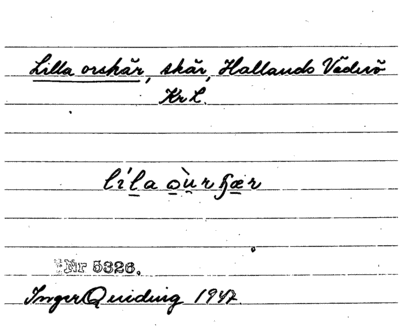 Lilla orskär, skär, Hallands Väderö
Kr L.
líl̠a o̠ùrɧæ̠r
Nr 5326.
Inger Quiding 1942